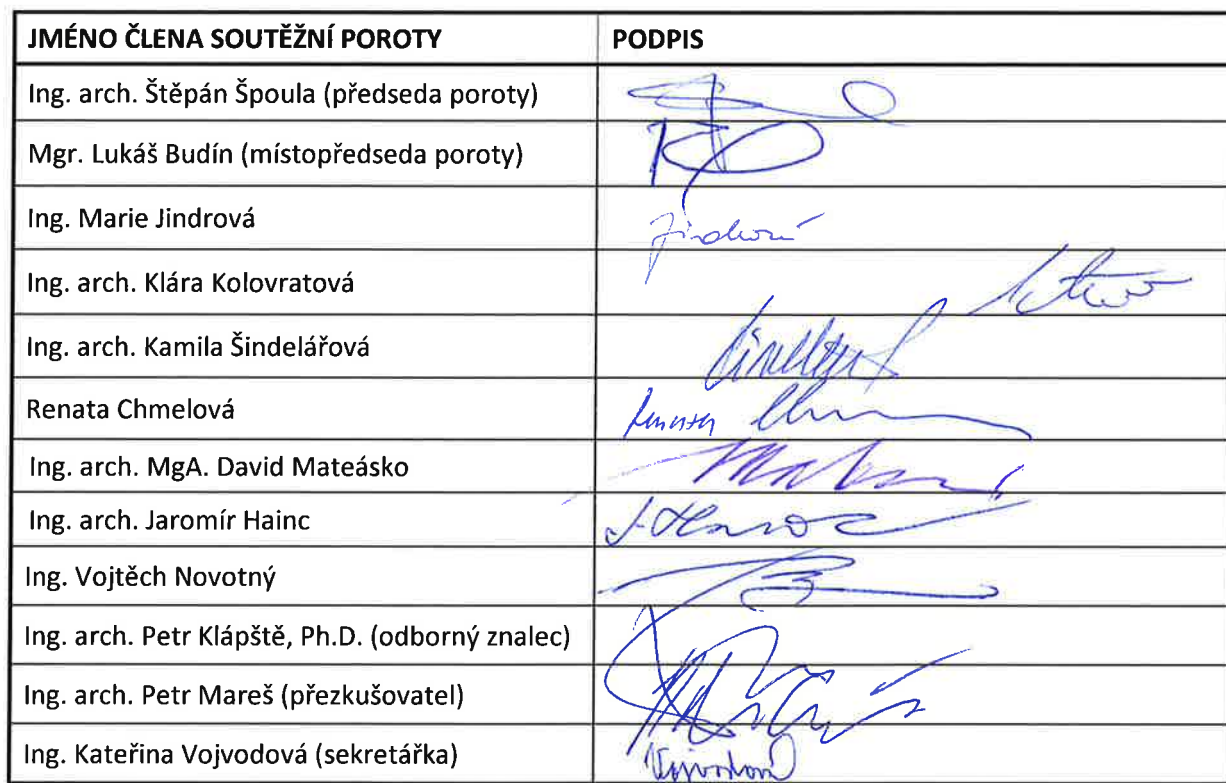 JMÉNO ČLENA SOUTĚŽNÍ POROTY PODPIS
Ing. arch. Štěpán Špoula (předseda poroty)
Mgr. Lukáš Budín (místopředseda poroty)
Ing. Marie Jindrová Jindrová
Ing. arch. Klára Kolovratová
Ing. arch. Kamila Šindelářová
Renata Chmelová
Ing. arch. MgA. David Mateásko
Ing. arch. Jaromír Hainc
Ing. Vojtěch Novotný
Ing. arch. Petr Klápště, Ph.D. (odborný znalec)
Ing. arch. Petr Mareš (přezkušovatel)
Ing. Kateřina Vojvodová (sekretářka) Vojvodová